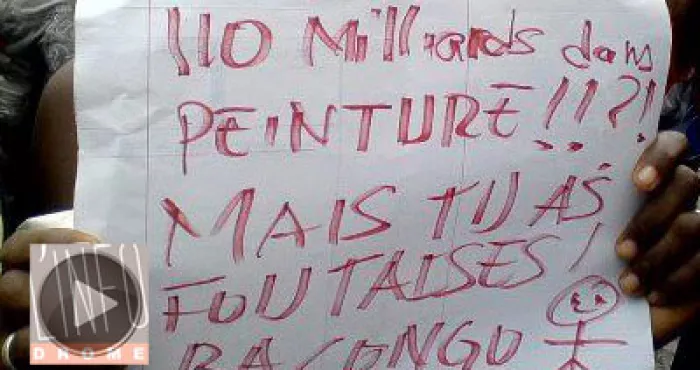 110 Milliards dans
PEINTURE!!?!
MAIS TU AS
FOUTAISES!
BACONGO
L'INFO
DROME